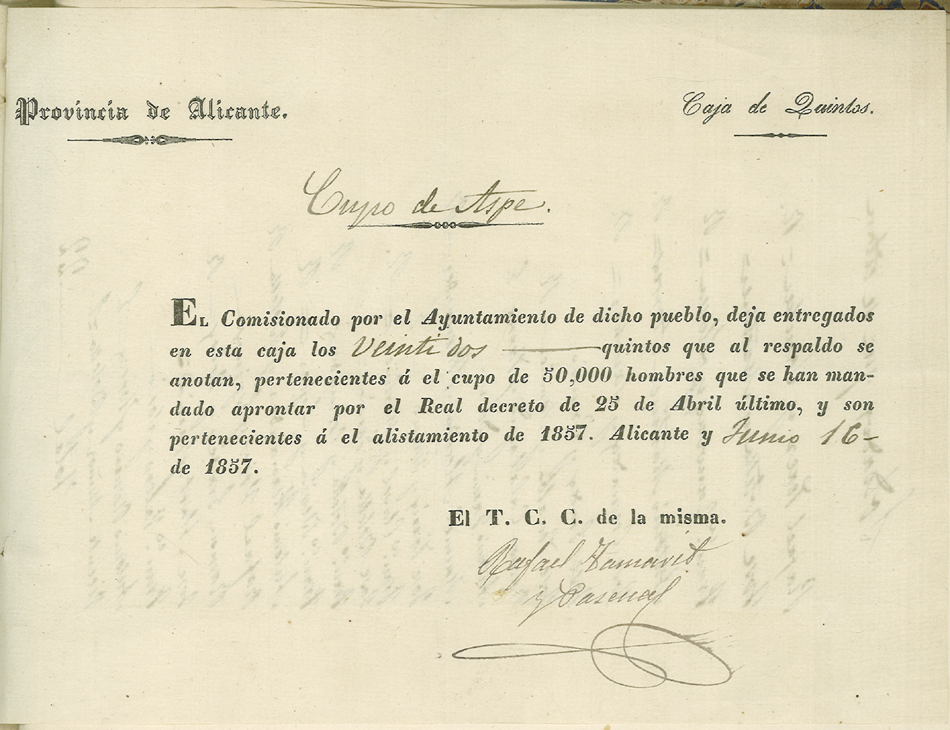 Provincia de Alicante.
Caja de Quintos.
Cupo de Aspe.
EL Comisionado por el Ayuntamiento de dicho pueblo, deja entregados
en esta caja los Veinti dos ——— quintos que al respaldo se
anotan, pertenecientes á el cupo de 50,000 hombres que se han man-
dado aprontar por el Real decreto de 25 de Abril último, y son
pertenecientes á el alistamiento de 1857. Alicante y Junio 16-
de 1857.
El T. C. C. de la misma.
Rafael Tamarit
y Pascual